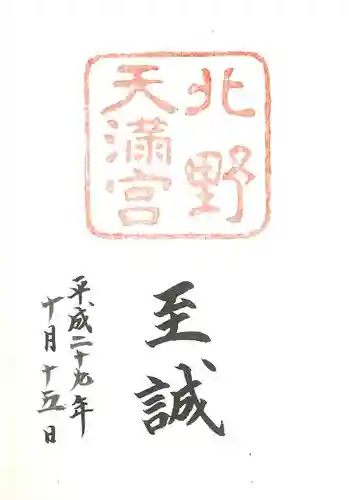 北野
天満宮
至誠
平成二十九年
十月十五日